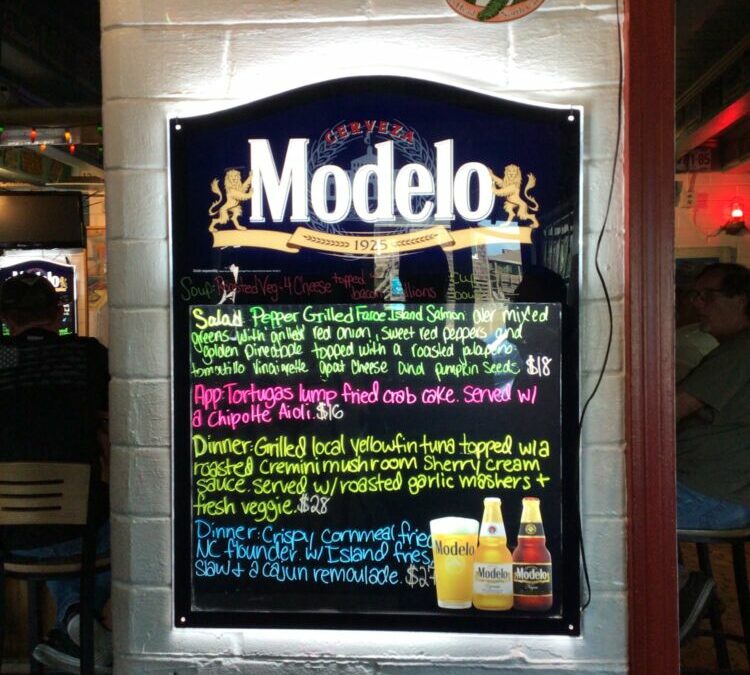 CERVEZA
Modelo
1925
Soup: Roasted Veg-4 Cheese topped
bacon
Salad: Pepper Grilled Faroe Island Salmon over mixed
greens with grilled red onion, sweet red peppers and
golden pineapple topped with a roasted jalapeno
tomatillo vinaigrette goat cheese and pumpkin seeds $18
App: Tortugas lump fried crab cake. served w/
a Chipotle Aioli. $16
Dinner: Grilled local yellowfin tuna topped w/a
roasted Cremini mushroom Sherry cream
sauce. served w/ roasted garlic mashers +
fresh veggie. $28
Dinner: Crispy cornmeal fried
NC flounder w/ Island
Slaw + a cajun remoulade.
Modelo
Modelo
Modelo
Modelo